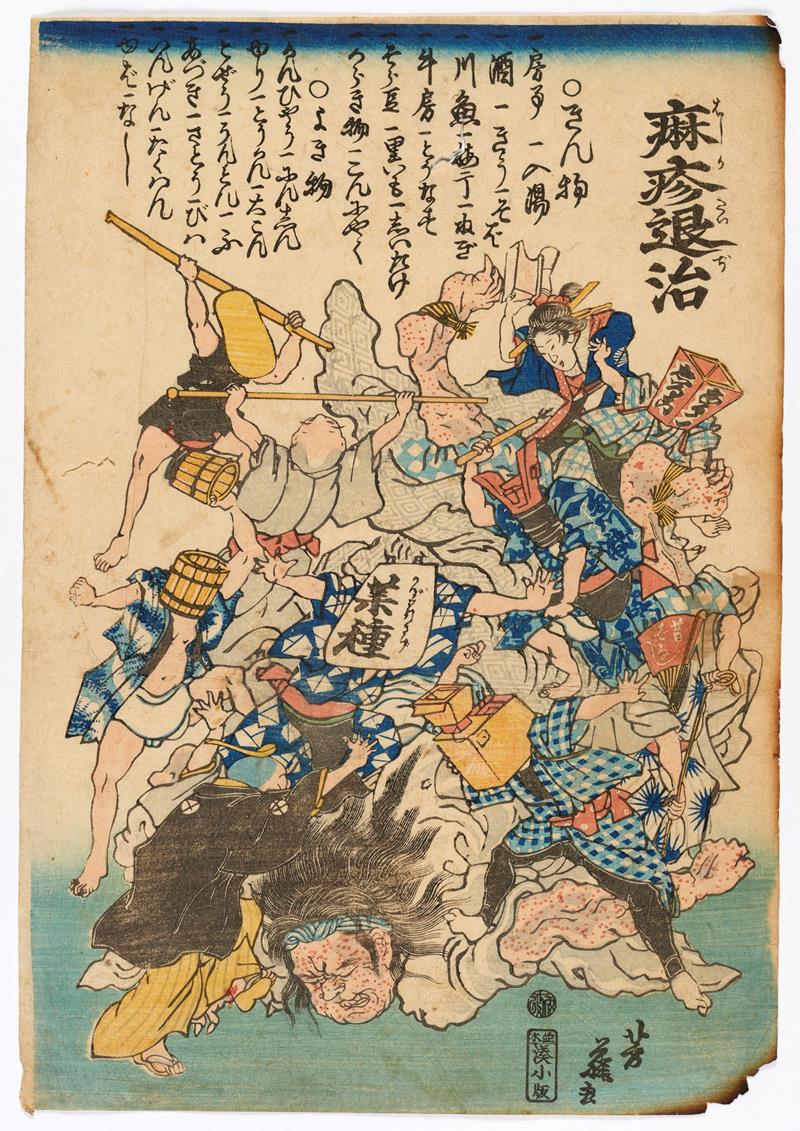 痲疹退治
はしかたいぢ
○きん物
一房事 一入湯
一酒 一きう一そば
一川魚一梅干一ねぎ
一牛房一とうなす
一そら豆一里いも一しいたけ
一からき物一こんにやく
○よき物
一かんひやう一にんじん
一ゆり一とうがん一大こん
一どぜう一うどん一ふ
一あづき一さとう一びは
一いんげん一たくわん
一ゆば一なし
薬種
昔
芳藤画
湊小版